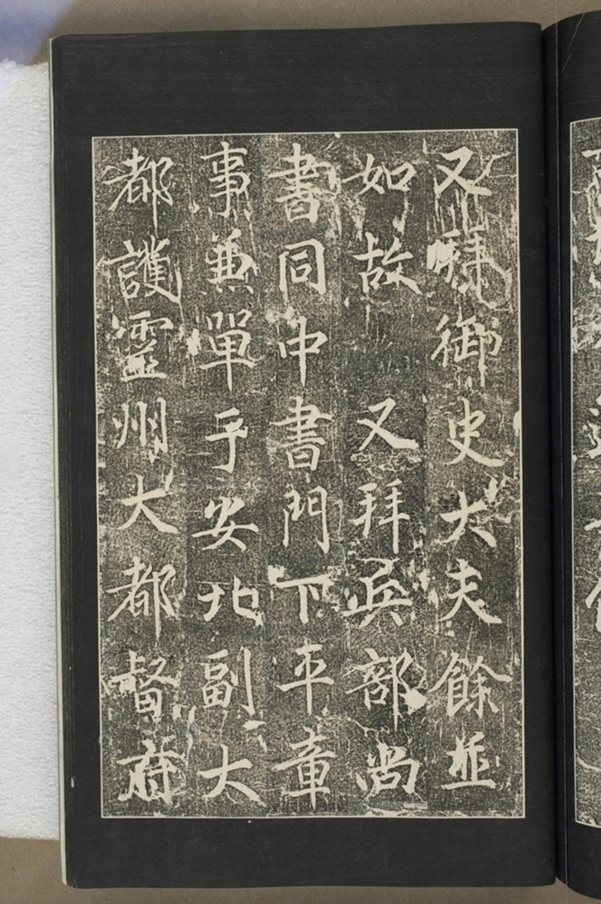 又拜御史大夫餘並
如故　又拜兵部尚
書同中書門下平章
事兼單于安北副大
都護靈州大都督府